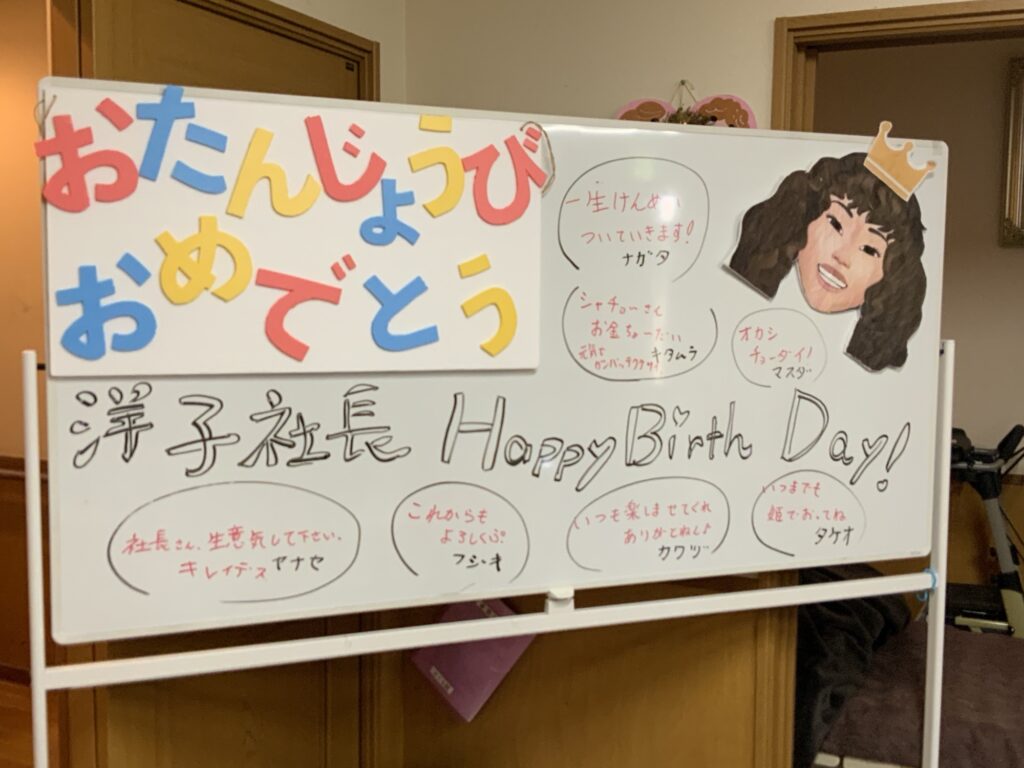 おたんじょうび
おめでとう
一生けんめい
ついていきます!
ナガタ
シャチョーさん
お金ちょーだい
キタムラ
オカシ
チョーダイ!
マスダ
洋子社長 Happy Birth Day!
社長さん、生意気して下さい。
キレイデス ヤナセ
これからも
よろしくぷ
フシキ
いつも楽しませてくれ
ありがとねし♪
カワヅ
いつまでも
姫でおってね
タケオ